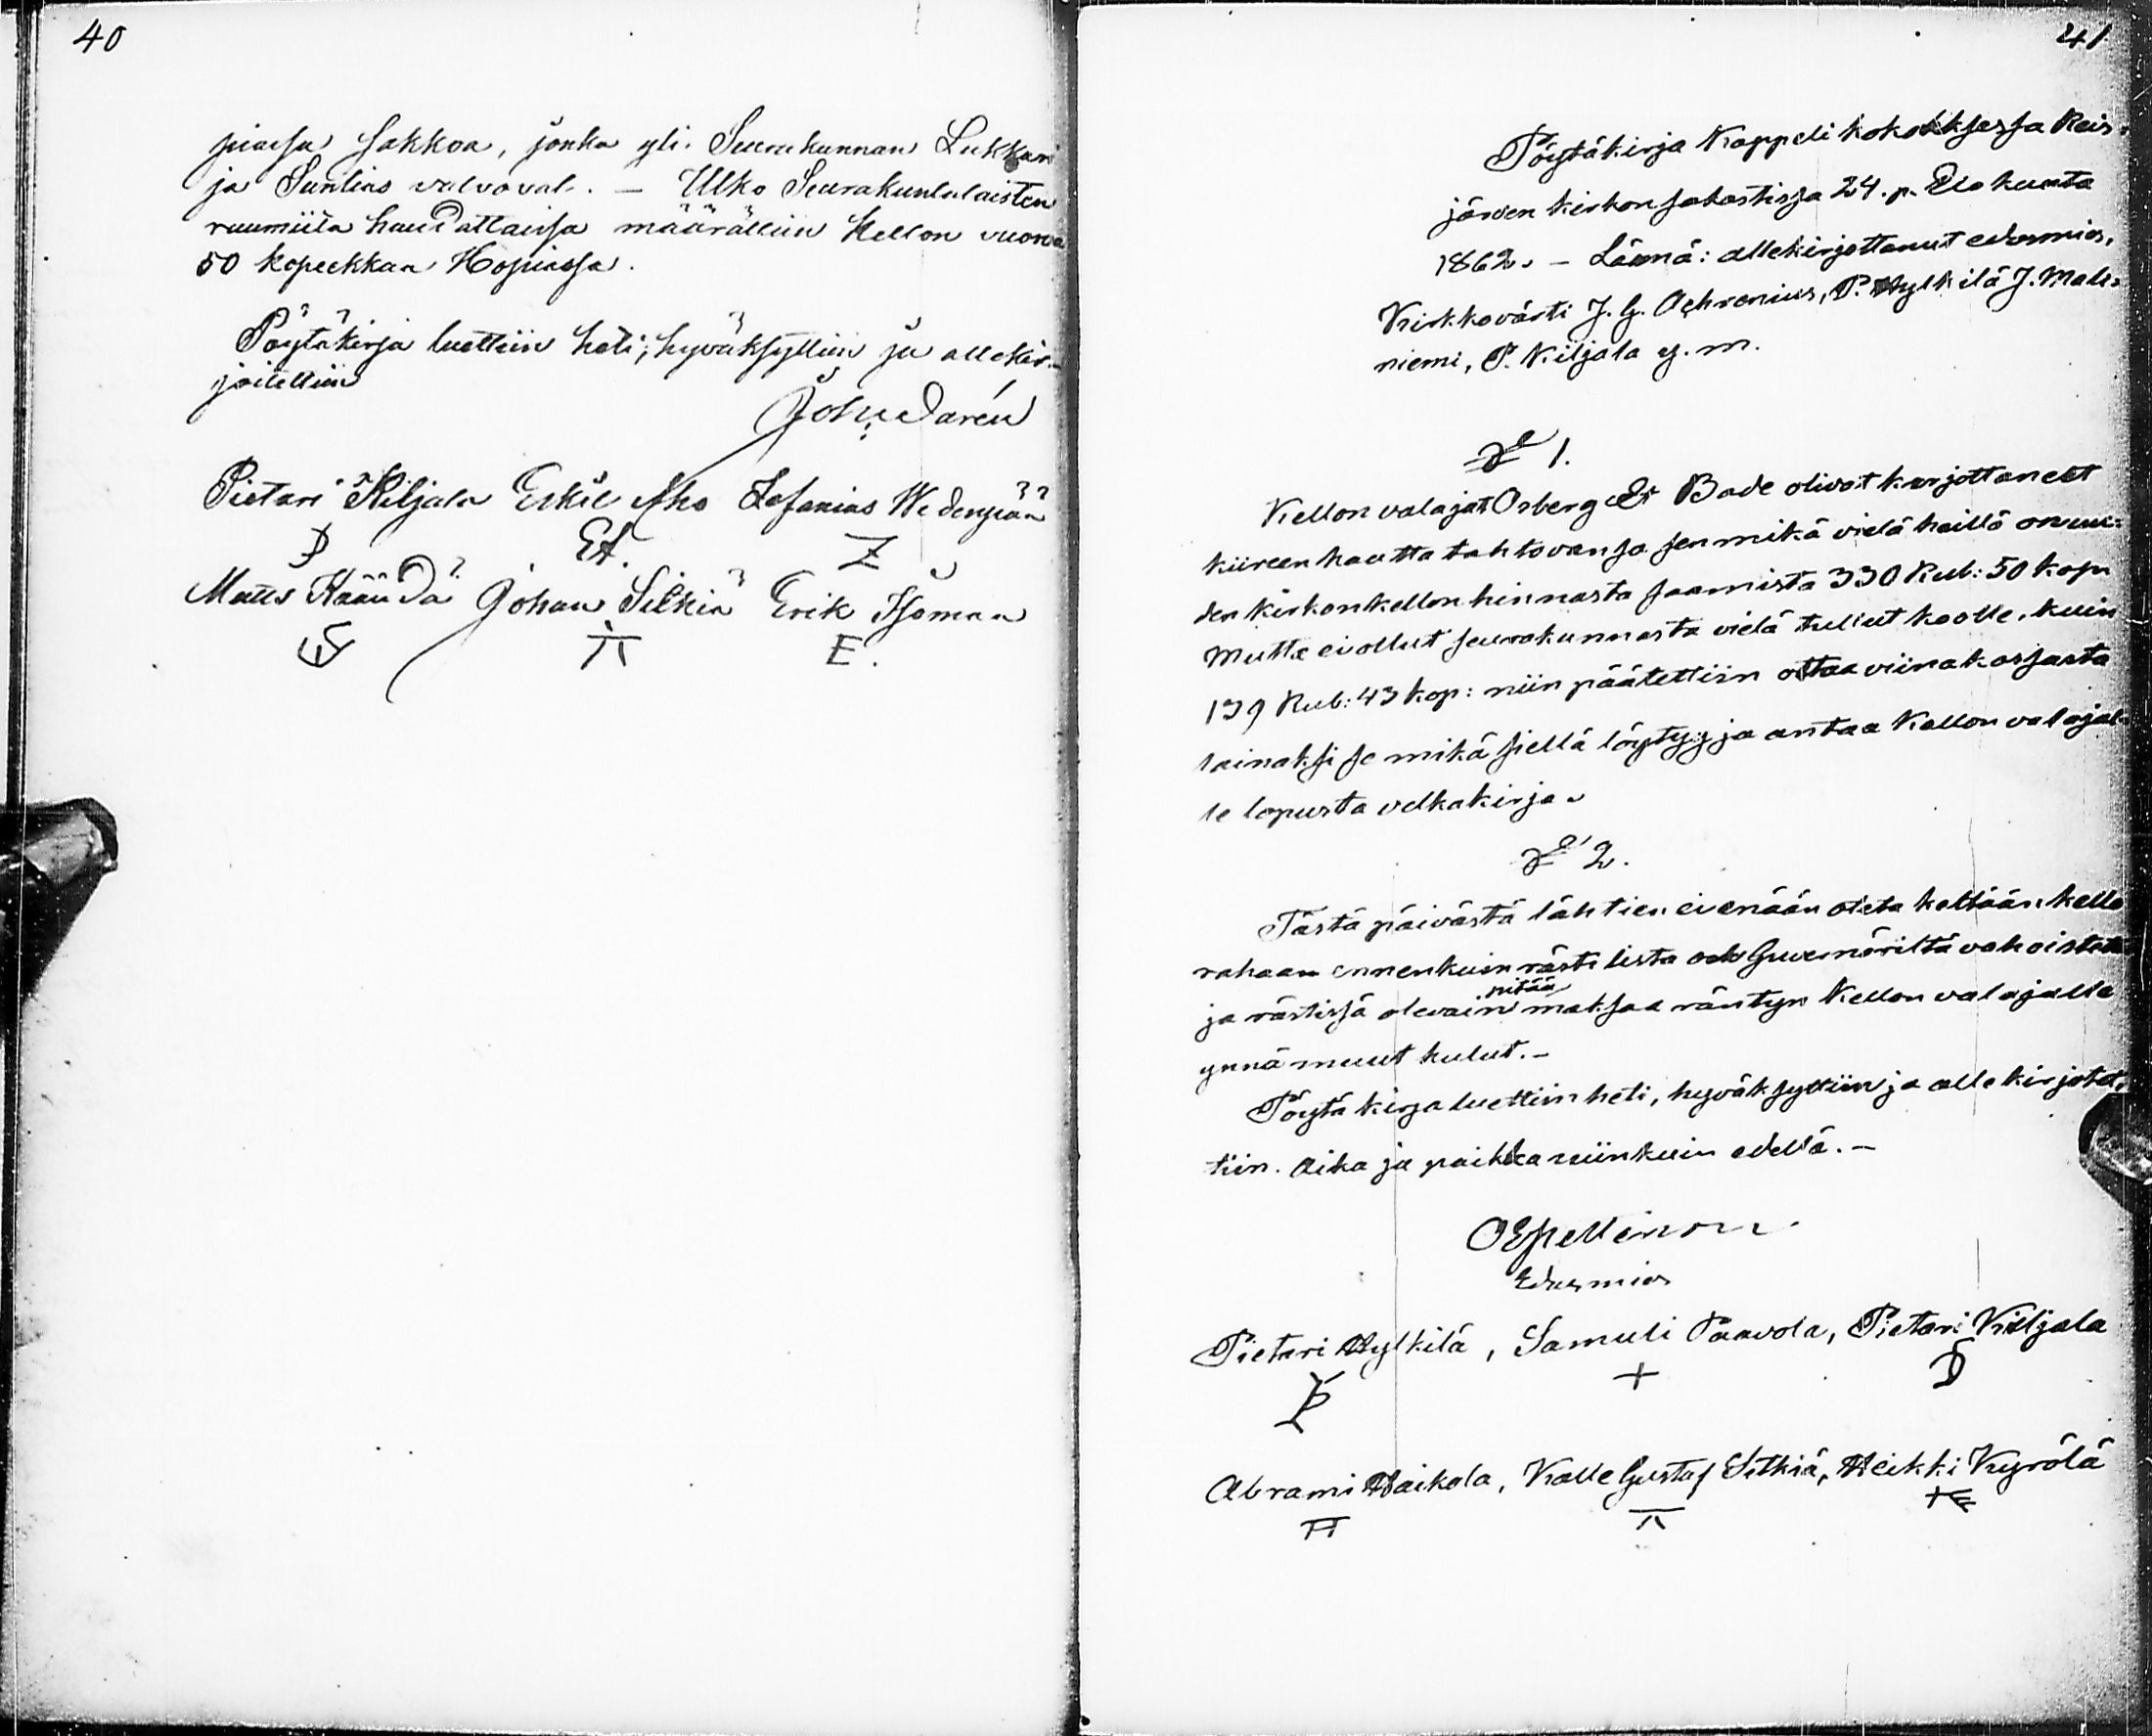 40
piassa sakkoa, jonka yli Seurakunnan Lukkari
ja Suntius valvovat. — Ulko Seurakuntalaisten
ruumiita haudattaissa määrättiin Kellon vuora
50 kopeekkaa Hopiassa.
Pöytäkirja luettiin heti, hyväksyttiin ja allekir-
joitettiin
Joh. Darén
Pietari Kiljala Erkki Aho Zefanias Wedenpää
P EA. Z
Matts Kääntä Johan Sitkiä Erik Isomaa
E.
41
Pöytäkirja Kappelikokouksessa Reis-
järven kirkon sakastissa 24. p. Elokuuta
1862. – Läsnä: allekirjottanut edusmies,
Kirkkovärti J. G. Achrenius, P. Hylkilä J. Mali-
niemi, P. Kiljala y. m.
§ 1.
Kellon valajat Osberg & Bade olivat kirjottaneet
kiireen kautta tahtovansa sen mikä vielä heillä on uu-
den kirkonkellon hinnasta saamista 330 Rub: 50 kop:
Mutta ei ollut seurakunnasta vielä tullut koolle kuin
139 Rub: 43 kop: niin päätettiin ottaa viinakassasta
lainaksi se mikä siellä löytyy ja antaa Kellon valajal-
le lopusta velkakirja.
§ 2.
Tästä päivästä lähtien ei enään oteta keltään kello
rahaa ennenkuin rästi lista on Guvernöriltä vahvistettu
ja rästissä olevain pitää maksaa räntyn Kellon valajalle
ynnä muut kulut. –
Pöytäkirja luettiin heti, hyväksyttiin ja allekirjotet-
tiin. Aika ja paikka niinkuin edellä. –
Edusmies
Pietari Hylkilä, Samuli Paavola, Pietari Kiljala
+
Abrami Haikola, Kalle Gustaf Sitkiä, Heikki Kyrölä